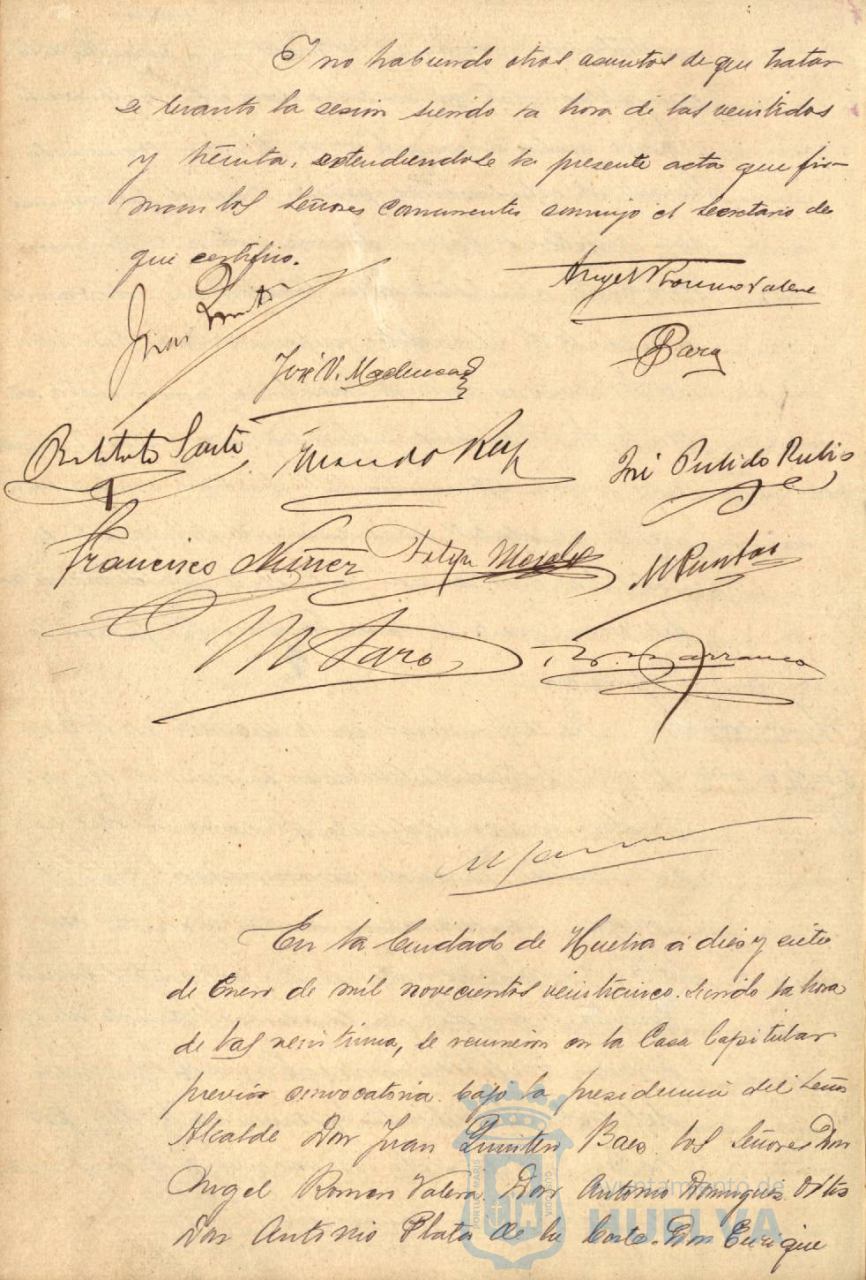 I no habiendo otros asuntos de que tratar
se levanto la sesión siendo la hora de las veintidos
y treinta, extendiendose la presente acta que fir-
man los señores concurrentes conmigo el secretario de
que certifico.
Angel Roman Valera
Juan Quintero
José V. Maclucas
Garcia
Restituto Santi
Ruiz
José Pulido Rubio
Francisco Núñez
Felipe Morales
M Puntas
M Haro
Barranco
En la Ciudad de Huelva á dies y siete
de Enero de mil novecientos veinticinco. siendo la hora
de las veintiuna, se reunieron en la Casa Capitular
previa convocatoria bajo la presidencia del Señor
Alcalde Don Juan Quintero Baez los señores Don
Angel Roman Valera Don Antonio Dominguez Ortis
Don Antonio Plata de la Corte. Don Enrique
Ayuntamiento de
HUELVA